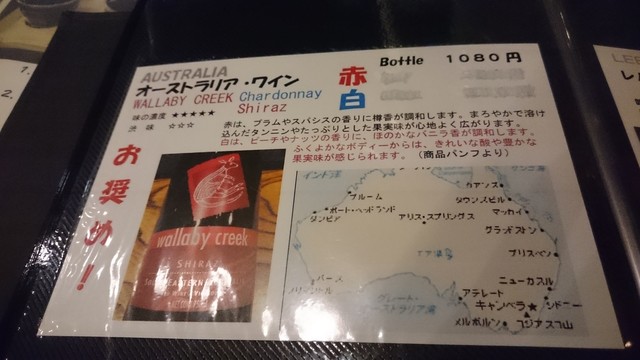 AUSTRALIA
オーストラリア・ワイン
WALLABY CREEK Chardonnay
Shiraz
赤
白
Bottle 1080円
味の濃度 ★★★★★
渋 味 ☆☆☆
赤は、プラムやスパシスの香りに樽香が調和します。まろやかで溶け
込んだタンニンやたっぷりとした果実味が心地よく広がります。
白は、ピーチやナッツの香りに、ほのかなバニラ香が調和します。
ふくよかなボディーからは、きれいな酸や豊かな
果実味が感じられます。(商品パンフより)
お奨め!
wallaby creek
SHIRAZ
インド洋
ブルーム
ポート・ヘッドランド
ダンピア
アリス・スプリングス
ケアンズ
タウンズビル
マッカイ
グラッドストン
ブリスベン
パース
ニューカスル
アデレート
キャンベラ
シドニー
メルボルン
コジアスコ山
グレート・
オーストラリア湾
1.
2.